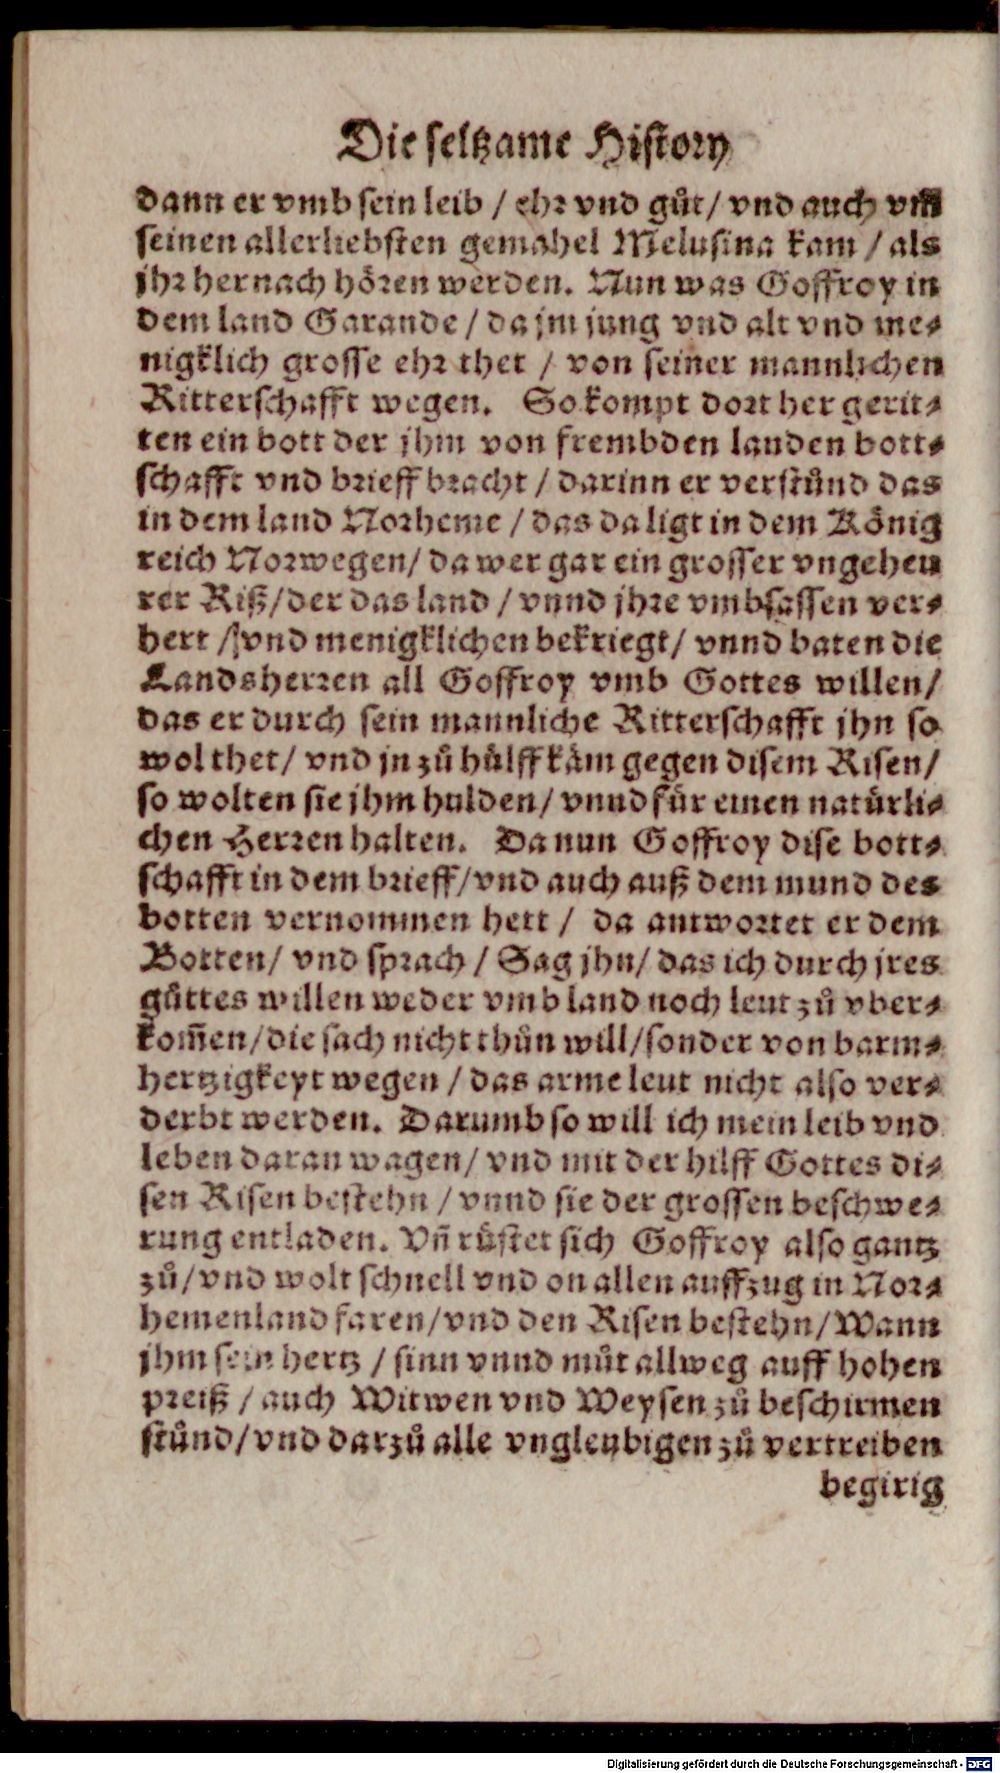 Die seltzame History
dann er vmb sein leib / ehr vnd gůt / vnd auch vm̄
seinen allerliebsten gemahel Melusina kam / als
jhr hernach hören werden. Nun was Goffroy in
dem land Garande / da jm jung vnd alt vnd me⸗
nigklich grosse ehr thet / von seiner mannlichen
Ritterschafft wegen. So kompt dort her gerit⸗
ten ein bott der jhm von frembden landen bott⸗
schafft vnd brieff bracht / darinn er verstůnd das
in dem land Norheme / das da ligt in dem König
reich Norwegen / da wer gar ein grosser vngeheu
rer Riß / der das land / vnnd jhre vmbsassen ver⸗
hert / vnd menigklichen bekriegt / vnnd baten die
Landsherren all Goffroy vmb Gottes willen /
das er durch sein mannliche Ritterschafft jhn so
wol thet / vnd jn zů hülff käm gegen disem Risen /
so wolten sie jhm hulden / vnnd für einen natürli⸗
chen Herren halten. Da nun Goffroy dise bott⸗
schafft in dem brieff / vnd auch auß dem mund des
botten vernommen hett / da antwortet er dem
Botten / vnd sprach / Sag jhn / das ich durch jres
gůttes willen weder vmb land noch leut zů vber⸗
kom̄en / die sach nicht thůn will / sonder von barm⸗
hertzigkeyt wegen / das arme leut nicht also ver⸗
derbt werden. Darumb so will ich mein leib vnd
leben daran wagen / vnd mit der hilff Gottes di⸗
sen Risen bestehn / vnnd sie der grossen beschwe⸗
rung entladen. Vn̄ rüstet sich Goffroy also gantz
zů / vnd wolt schnell vnd on allen auffzug in Nor⸗
hemenland faren / vnd den Risen bestehn / Wann
jhm sein hertz / sinn vnnd můt allweg auff hohen
preiß / auch Witwen vnd Weysen zů beschirmen
stůnd / vnd darzů alle vngleubigen zů vertreiben
begirig
Digitalisierung gefördert durch die Deutsche Forschungsgemeinschaft - DFG